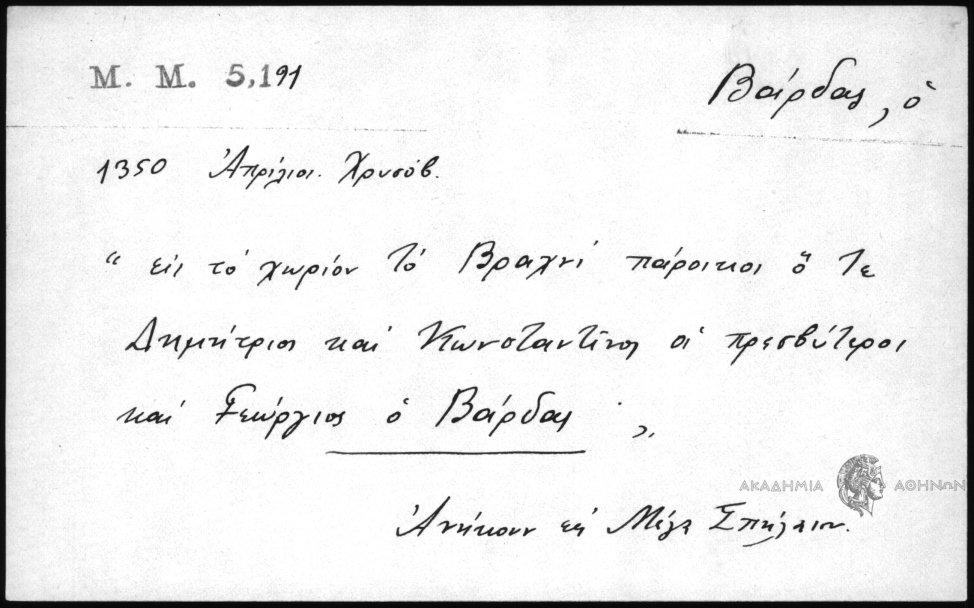 Μ. Μ. 5,191
Βάρδας, ὁ
1350 Ἀπρίλιοι. Χρυσόβ.
“ εἰς τὸ χωρίον τὸ Βραχνί πάροικοι ὅ τε
Δημήτριος καί Κωνσταντῖνος οἱ πρεσβύτεροι
καί Γεώργιος ὁ Βάρδας „.
ΑΚΑΔΗΜΙΑ ΑΘΗΝΩΝ
Ἀνήκουν εἰς Μέγα Σπήλαιον.